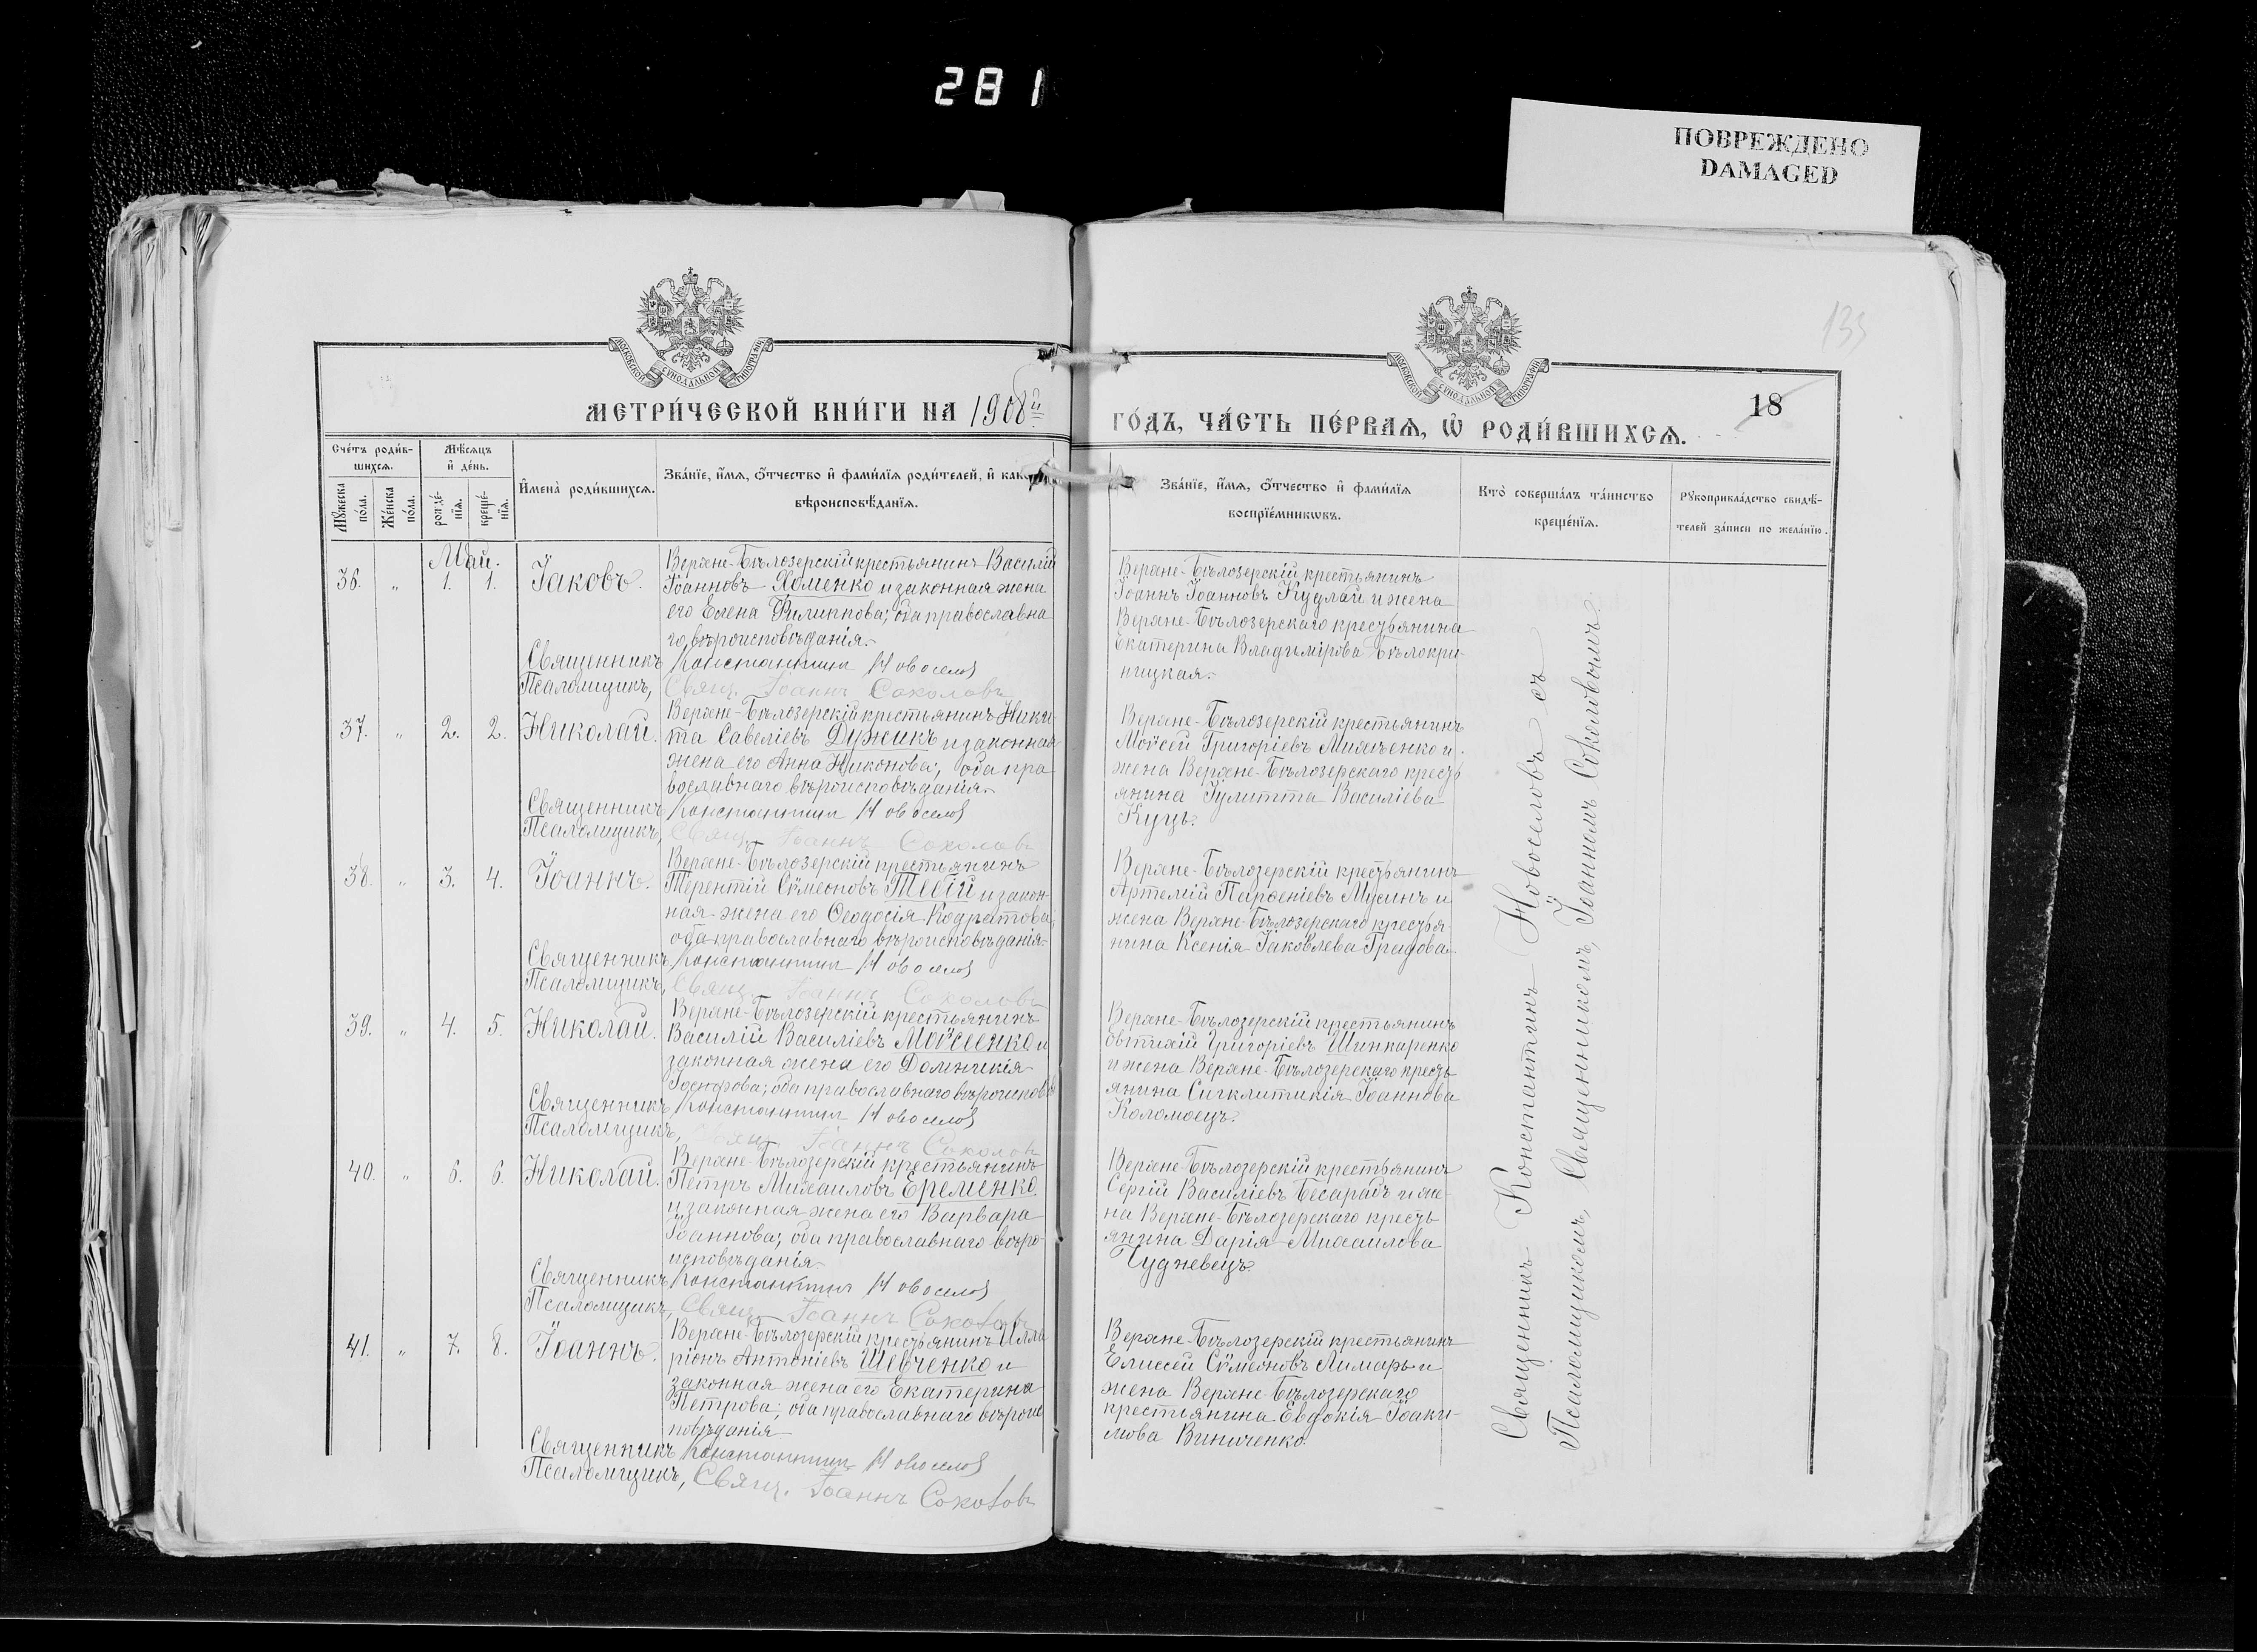 281
ПОВРЕЖДЕНО
DAMAGED
МОСКОВСКОЙ СУНОДАЛЬНОЙ ТИПОГРАФІИ
МОСКОВСКОЙ СУНОДАЛЬНОЙ ТИПОГРАФІИ
МЕТРИ́ЧЕСКОЙ КНИ́ГИ НА 1908й
ГО́ДЪ, ЧА́СТЬ ПЕ́РВАѦ, Ѡ҆ РОДИ́ВШИХСѦ.
18
Сче́тъ роди́в-
шихсѧ.
Мѣ́сѧцъ
и҆ де́нь.
Мꙋ́жеска
по́ла.
Же́нска
по́ла.
рожде́-
нїѧ.
креще́-
нїѧ.
И҆мена̀ роди́вшихсѧ.
Зва́нїе, и҆́мѧ, ѻ҆́тчество и҆ фами́лїѧ роди́телей, и҆ како
вѣроисповѣ́данїѧ.
Зва́нїе, и҆́мѧ, ѻ҆́тчество и҆ фами́лїѧ
воспрїе́мникѡвъ.
Кто̀ соверша́лъ та́инство
креще́нїѧ.
Рꙋкоприкла́дство свидѣ́-
телей за́писи по жела́нїю.
Май.
36. „ 1. 1. Іаковъ.
Верхне-Бѣлозерскій крестьянинъ Василій
Іоанновъ Хоменко и законная жена
его Елена Филиппова; оба православна
го вѣроисповѣданія.
Священникъ Константин Новоселов
Псаломщикъ, Свящ. Іоаннъ Соколовъ
Верхне-Бѣлозерскій крестьянинъ
Іоаннъ Іоанновъ Кудлай и жена
Верхне-Бѣлозерскаго крестьянина
Екатерина Владимірова Бѣлокри-
ницкая.
37. „ 2. 2. Николай.
Верхне-Бѣлозерскій крестьянинъ Ники-
та Савеліевъ Дужикъ и законная
жена его Анна Никонова; оба пра
вославнаго вѣроисповѣданія.
Священникъ Константин Новоселов
Псаломщикъ, Свящ. Іоаннъ Соколовъ
Верхне-Бѣлозерскій крестьянинъ
Моѵсей Григоріевъ и
жена Верхне-Бѣлозерскаго кресть
янина Іулитта Василіева
Куцъ.
38. „ 3. 4. Іоаннъ.
Верхне-Бѣлозерскій крестьянинъ
Терентій Сѵмеоновъ и закон-
ная жена его Ѳеодосія Кодратова;
оба православнаго вѣроисповѣданія.
Священникъ Константин Новоселов
Псаломщикъ, Свящ. Іоаннъ Соколовъ
Верхне-Бѣлозерскій крестьянинъ
Артемій Парѳеніевъ Мусинъ и
жена Верхне-Бѣлозерскаго крестья
нина Ксенія Іаковлева Градова.
39. „ 4. 5. Николай.
Верхне-Бѣлозерскій крестьянинъ
Василій Василіевъ Моѵсеенко и
законная жена его Домникія
оба православнаго вѣроисповѣд
Священникъ, Константин Новоселов
Псаломщикъ, Свящ. Іоаннъ Соколов
Верхне-Бѣлозерскій крестьянинъ
Евтихій Григоріевъ Шинкаренко
и жена Верхне-Бѣлозерскаго кресть
янина Сигклитикія Іоаннова
Коломоецъ.
40. „ 6. 6. Николай.
Верхне-Бѣлозерскій крестьянинъ
Петръ Михаиловъ Еременко
и законная жена его Варвара
Іоаннова; оба православнаго вѣро-
исповѣданія.
Священникъ, Константин Новоселов
Псаломщикъ, Свящ. Іоаннъ Соколовъ
Верхне-Бѣлозерскій крестьянинъ
Сергій Василіевъ Бесарабъ и же-
на Верхне-Бѣлозерскаго кресть
янина Дарія Михаилова
Чудневецъ.
41. „ 7. 8. Іоаннъ.
Верхне-Бѣлозерскій крестьянинъ Илла
ріонъ Антоніевъ Шевченко и
законная жена его Екатерина
Петрова; оба православнаго вѣроис
повѣданія
Священникъ Константин Новоселов
Псаломщикъ, Свящ. Іоаннъ Соколовъ
Верхне-Бѣлозерскій крестьянинъ
Елиссей Сѵмеоновъ Лимарь и
жена Верхне-Бѣлозерскаго
крестьянина Евдокія Іоаки-
мова Виниченко.
Священникъ Константинъ Новоселовъ съ
Псаломщикомъ, Священникомъ, Іоанномъ Соколовымъ.